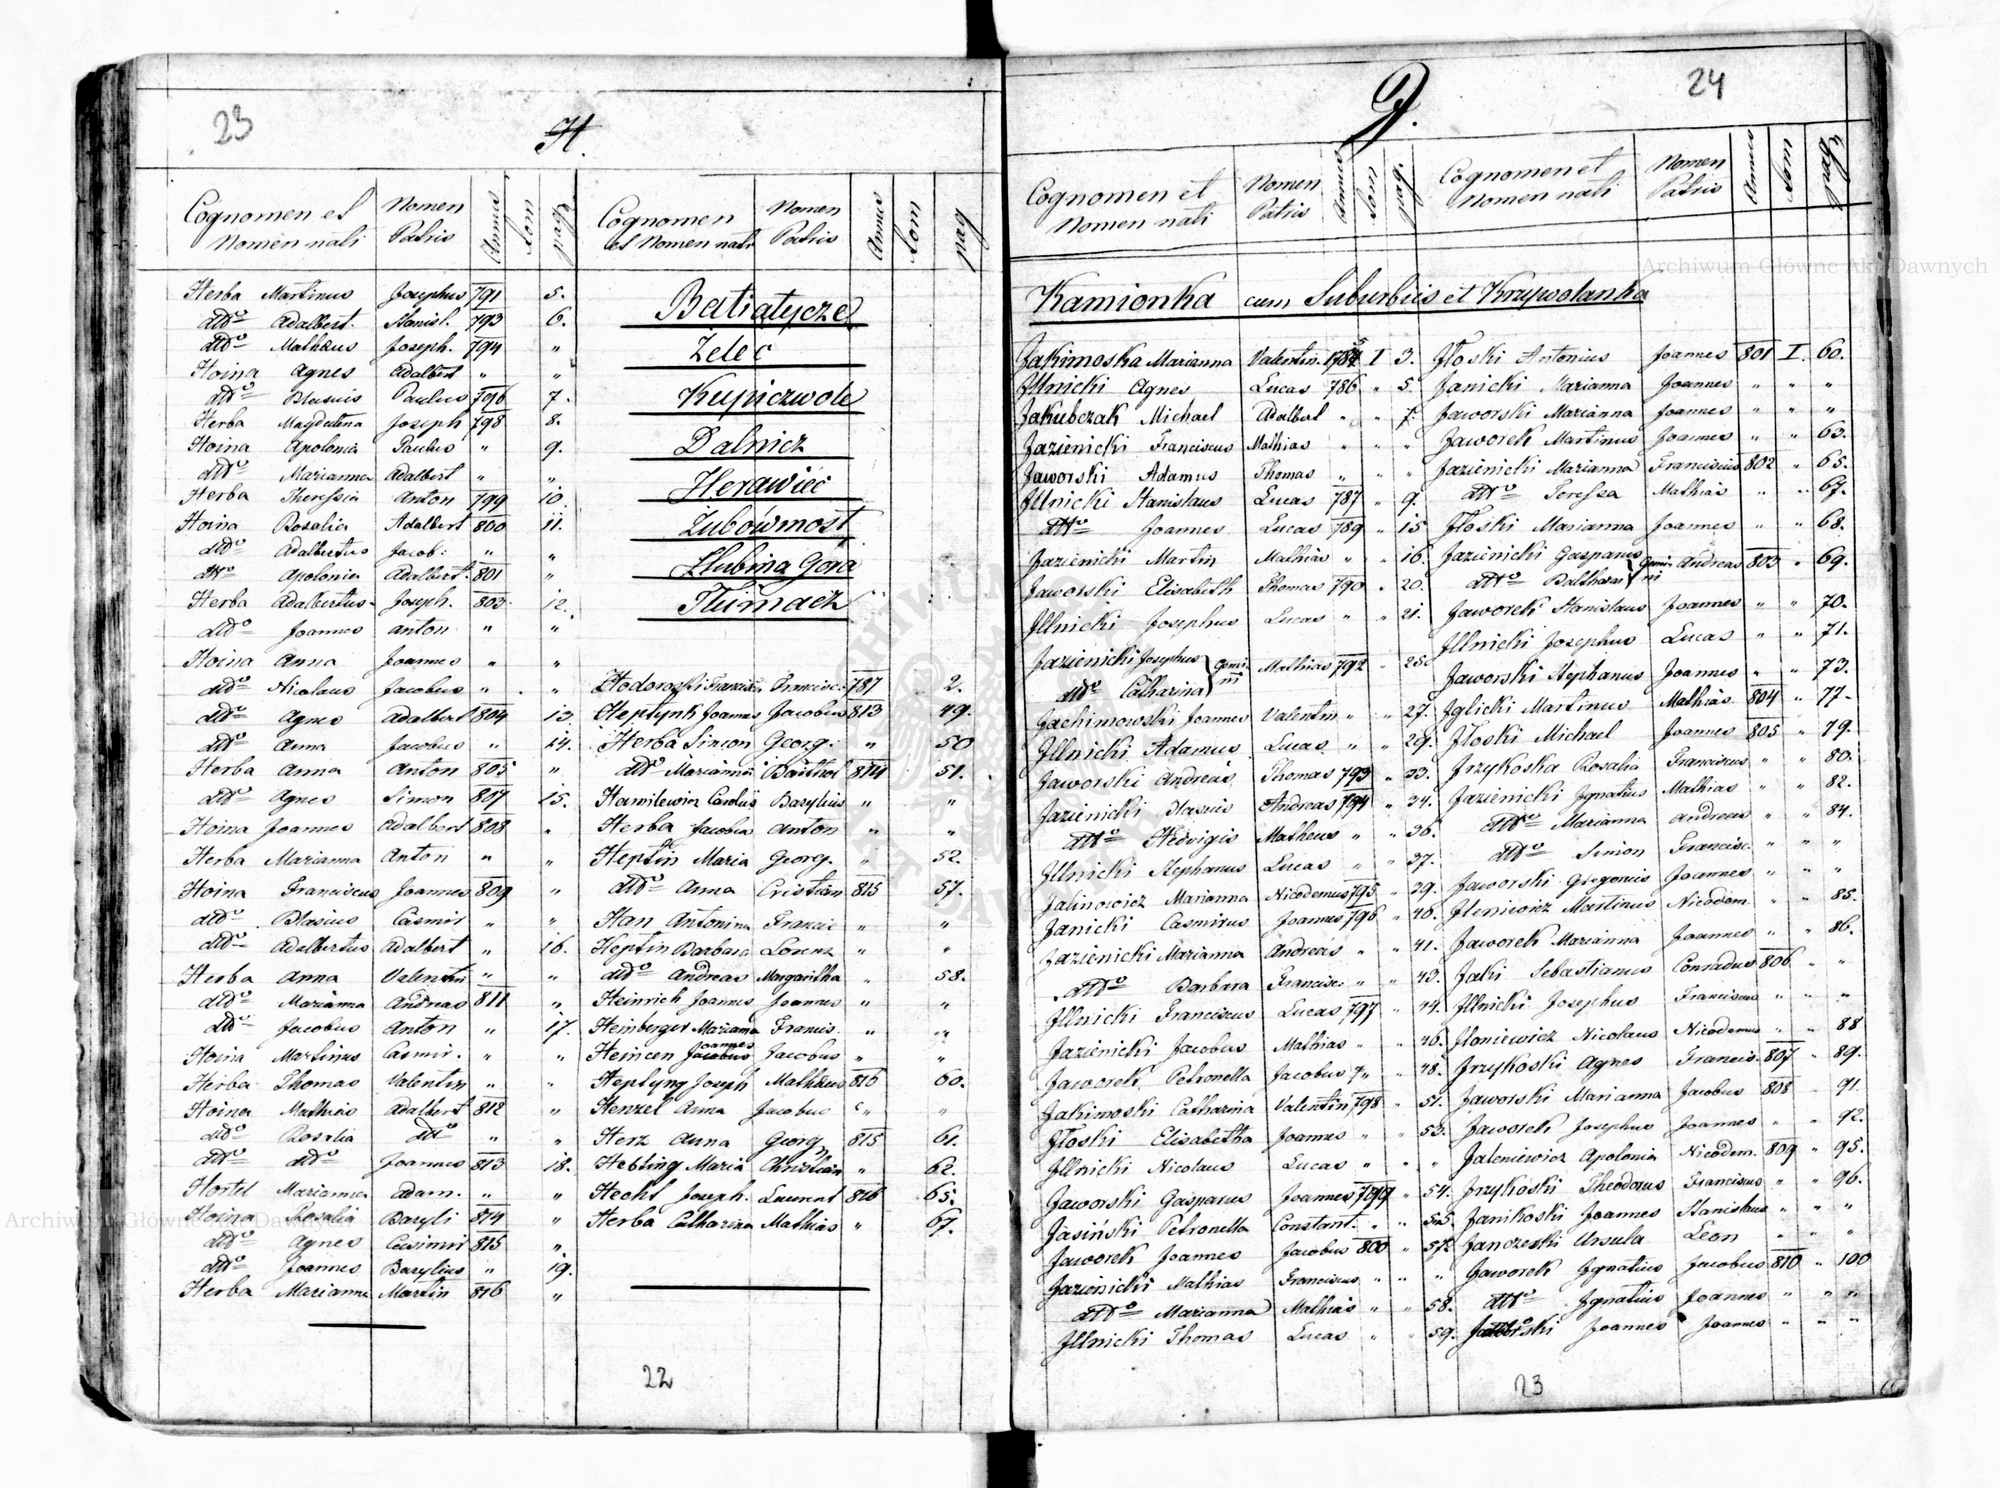 23
H.
Cognomen et Nomen nati
Nomen Patris
Annus
Tom
pag.
Herba Martinus Josephus 791 5.
dtto Adalbert. Stanisl. 793 6.
dtto Mathæus Joseph. 794 "
Hoina Agnes Adalbert " "
dtto Blasius Paulus 796 7.
Herba Magdalena Joseph 798 8.
Hoina Apolonia Paulus " 9.
dtto Marianna Adalbert " "
Herba Theressia Anton 799 10.
Hoina Rosalia Adalbert 800 11.
dtto Adalbertus Jacob: " "
dtto Apolonia Adalbert. 801 "
Herba Adalbertus Joseph. 803 12.
dtto Joannes Anton " "
Hoina Anna Joannes " "
dtto Nicolaus Jacobus " "
dtto Agnes Adalbert 804 13.
dtto Anna Jacobus " 14.
Herba Anna Anton 805 "
dtto Agnes Simon 807 15.
Hoina Joannes Adalbert 808 "
Herba Marianna Anton " "
Hoina Franciscus Joannes 809 "
dtto Blasius Casmir " "
dtto Adalbertus Adalbert " 16.
Herba Anna Valentin " "
dtto Marianna Andreas 811 "
dtto Jacobus Anton " 17.
Hoina Martinus Casmir. " "
Herba Thomas Valentin " "
Hoina Mathias Adalbert 812 "
dtto Rosalia dtto " "
dtto dtto Joannes 813 18.
Hostel Marianna Adam. " "
Hoina Rosalia Baryli 814 "
dtto Agnes Casimir 815 "
dtto Joannes Barylius " 19.
Herba Marianna Martin 816 "
Cognomen et Nomen nati
Nomen Patris
Annus
Tom
pag
Batiatycze
Zelec
Kupiczwole
Dalnicz
Herawiec
Zubówmost
Hubina Gora
Tłumacz
Franciscus 787 2.
Heptynk Joannes Jacobus 813 49.
Herba Simon Georg: " 50
dtto Marianna Barthol 814 51.
Carolus Barylius " "
Herba Jacobus Anton " "
Heptin Maria Georg. " 52.
dtto Anna Cristian 815 57.
Han Antonina Francis " "
Heptin Barbara Lorenz " "
dtto Andreas Margaritha " 58.
Heinrich Joannes Joannes " "
Heinberger Marianna Francis. " "
Heincen Joannes Jacobus " "
Heptyng Joseph Mathæus 816 60.
Henzel Anna Jacobus " "
Herz Anna Georg 815 61.
Hebling Maria Christian " 62.
Hecht Joseph. Laurent 816 65.
Herba Catharina Mathias " 67.
22
24
J.
Cognomen et Nomen nati
Nomen Patris
Annus
Tom
pag.
Cognomen et Nomen nati
Nomen Patris
Annus
Tom
pag.
Kamionka cum Suburbiis et Krzywolanka
Jakimoska Marianna Valentin. 1784 I 3.
Jllnicki Agnes Lucas 786 " 5.
Jakubczak Michael Adalbal " " 7.
Jazienicki Franciscus Mathias " " "
Jaworski Adamus Thomas " " "
Jllnicki Stanislaus Lucas 787 " 9.
dtto Joannes Lucas 789 " 15
Jazienicki Martin Mathias " " 16.
Jaworski Elisabeth Thomas 790 " 20.
Jllnicki Josephus Lucas " " 21.
Jazienicki Josephus Gemini Mathias 792 " 25.
dtto Catharina
Jachimowski Joannes Valentin " " 27.
Jllnicki Adamus Lucas " " 29.
Jaworski Andreas Thomas 793 " 33.
Jazienicki Blasius Andreas 794 " 34.
dtto Hedvigis Matheus " " 36.
Jllnicki Stephanus Lucas " " 37.
Jalinowicz Marianna Nicodemus 795 " 39.
Janicki Casmirus Joannes 796 " 40.
Jazienicki Marianna Andreas " " 41.
dtto Barbara Francisc: " " 43.
Jllnicki Franciscus Lucas 797 " 44.
Jazienicki Jacobus Mathias " " 46.
Jaworek Petronella Jacobus " " 48.
Jakimoski Catharina Valentin 798 " 51.
Jłoski Elisabetha Joannes " " 53.
Jllnicki Nicolaus Lucas " " "
Jaworski Gasparus Joannes 799 " 54.
Jasiński Petronella Constant. " " 55.
Jaworek Joannes Jacobus 800 " 57.
Jazienicki Mathias Franciscus " " "
dtto Marianna Mathias " " 58.
Jllnicki Thomas Lucas " " 59.
Jłoski Antonius Joannes 801 I. 60.
Janicki Marianna Joannes " " "
Jaworski Marianna Joannes " " "
Jaworek Martinus Joannes " " 63.
Jazienicki Marianna Franciscus 802 " 65.
dtto Teressa Mathias " " 67.
Jłoski Marianna Joannes " " 68.
Jazienicki Gasparus Gemini Andreas 803 " 69.
dtto Balthasar
Jaworek Stanislaus Joannes " " 70.
Jllnicki Josephus Lucas " " 71.
Jaworski Stephanus Joannes " " 73.
Jglicki Martinus Mathias 804 " 77.
Jłoski Michael Joannes 805 " 79.
Jrzykoska Rosalia Franciscus " " 80.
Jazienicki Jgnatius Mathias " " 82.
dtto Marianna Andreas " " 84.
dtto Simon Francisc. " " "
Jaworski Gregorius Joannes " " "
Jleniewicz Martinus Nicodem. " " 85.
Jaworek Marianna Joannes " " 86.
Jaki Sebastianus Conradus 806 " "
Jllnicki Josephus Franciscus " " "
Jloniewicz Nicolaus Nicodemus " " 88
Jrzykoski Agnes Francis. 807 " 89.
Jaworski Marianna Jacobus 808 " 91.
Jaworek Josephus Joannes " " 92.
Jaleniewicz Apolonia Nicodem. 809 " 95.
Jrzykoski Theodorus Franciscus " " 96.
Janikoski Joannes Stanislaus " " "
Janczeski Ursula Leon " " "
Jaworek Jgnatius Jacobus 810 " 100
dtto Jgnatius Joannes " " "
Joannes Joannes " " "
23
Archiwum Główne Akt Dawnych
Archiwum Główne Akt Dawnych